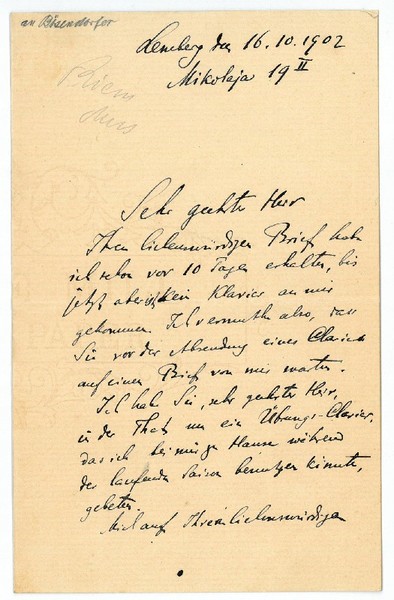 an Bösendorfer
Lemberg den 16.10.1902
Mikolaja 19 II
Sehr geehrter Herr
Ihren liebenswürdigen Brief habe
ich schon vor 10 Tagen erhalten, bis
jetzt aber ist kein Klavier an mir
gekommen. Ich vermuthe also, dass
Sie vor der Absendung eines Clavier
auf einen Brief von mir warten.
Ich habe Sie, sehr geehrter Herr,
in der That um ein Übungs-Clavier,
das ich bei mir zu Hause während
der laufenden Saison benutzen könnte,
gebeten.
Mich auf Ihren liebenswürdigen